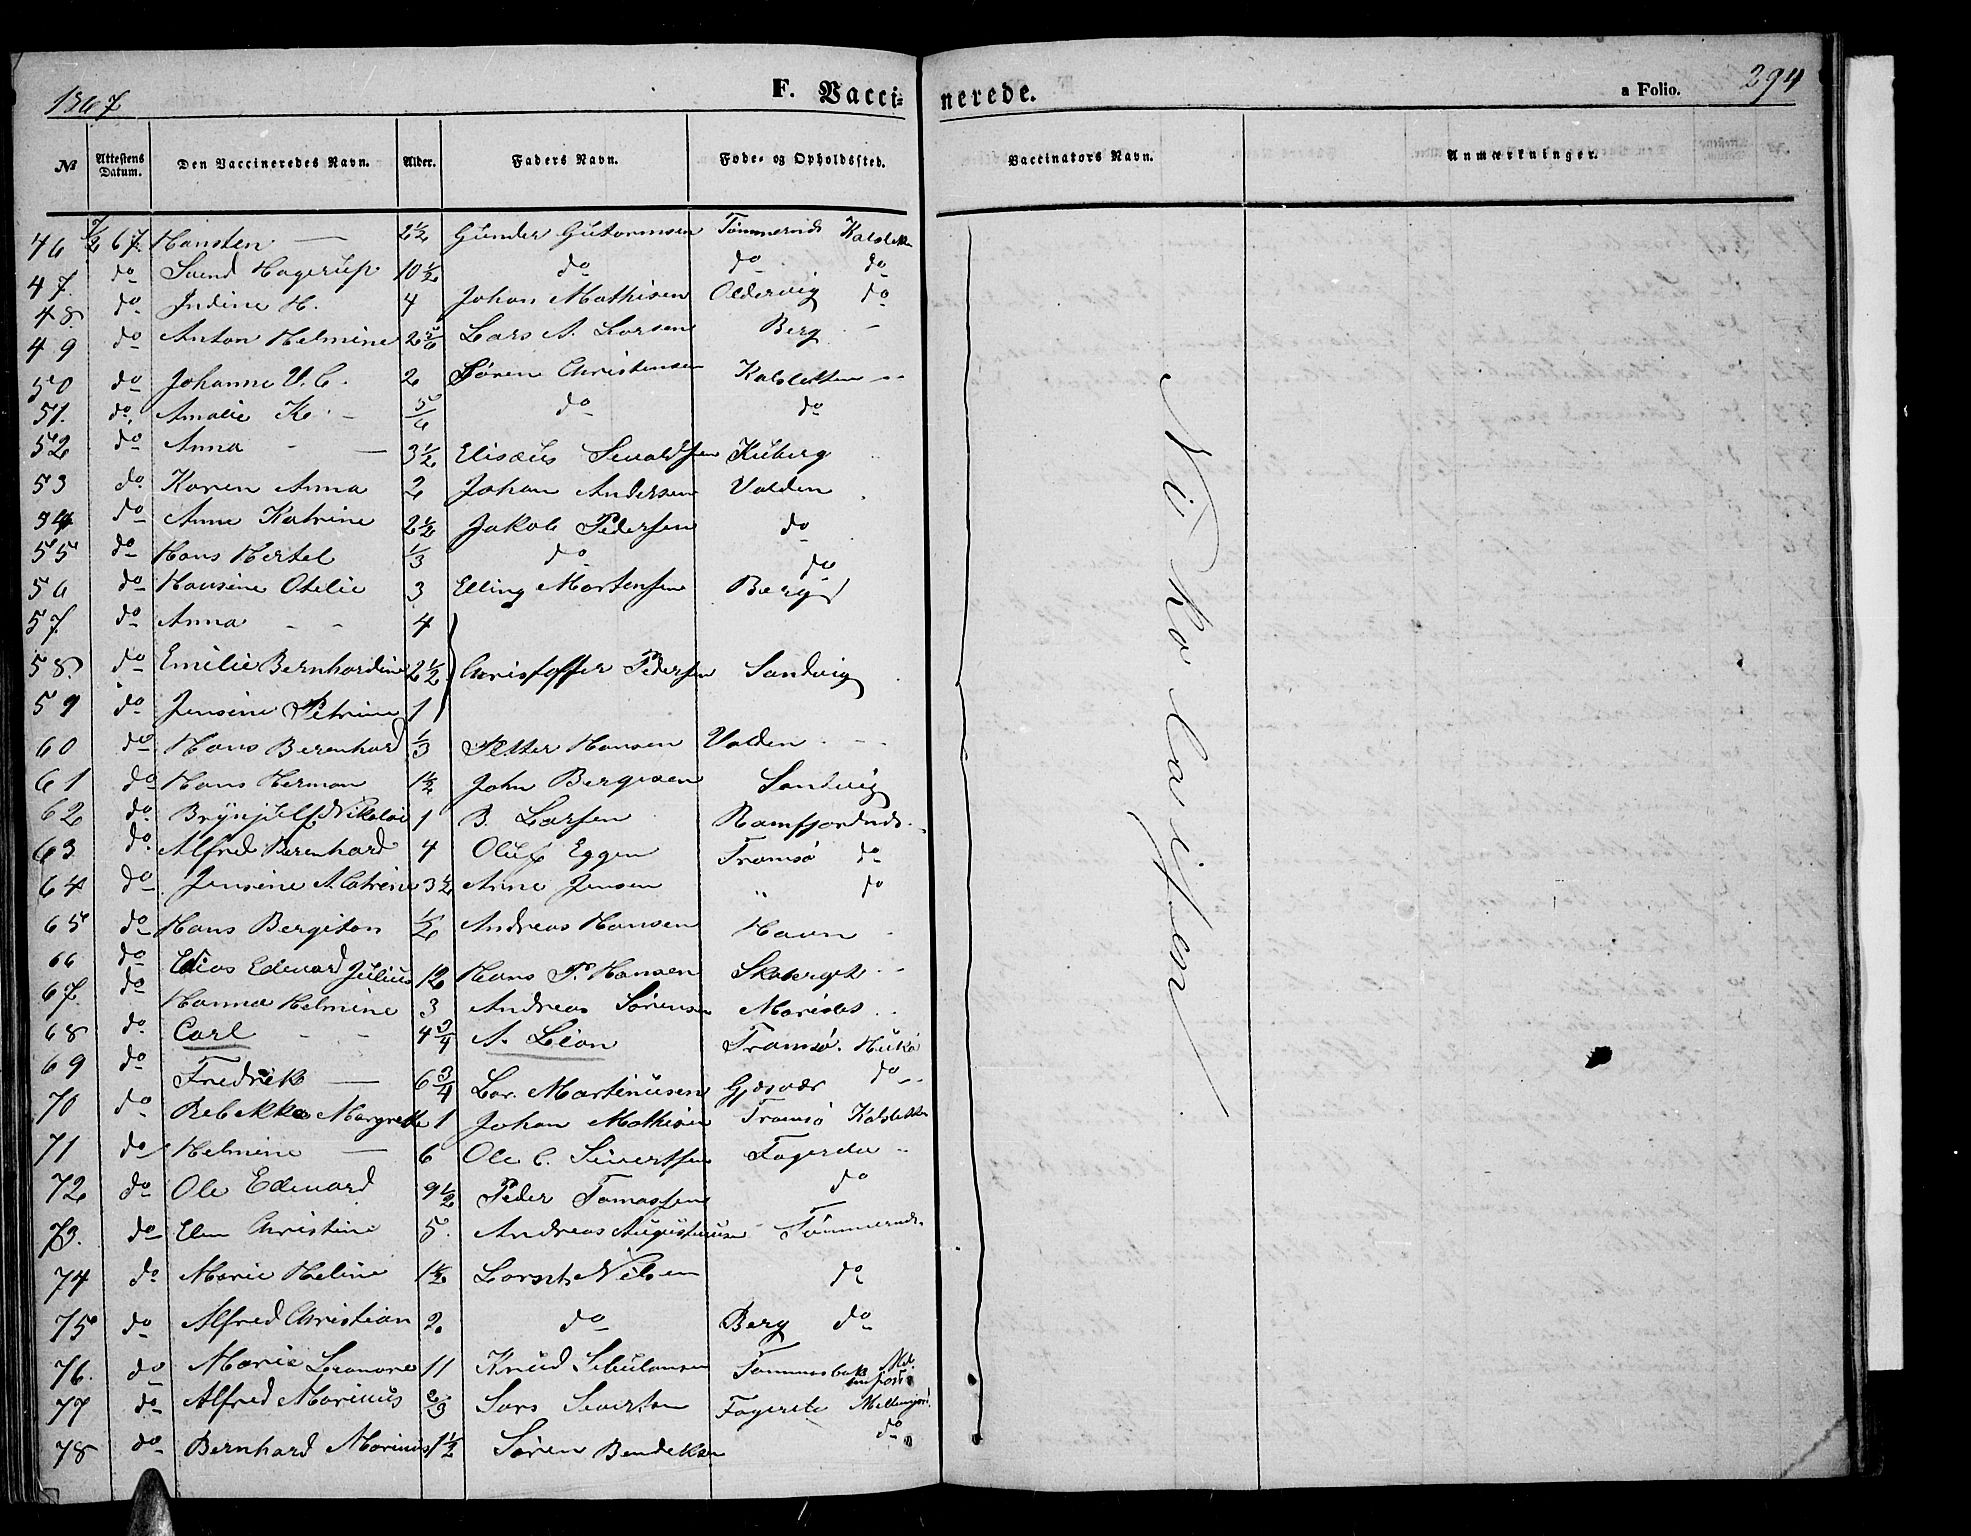 1867 F. Vaccinerede. a Folio. 294
№ Attestens Datum. Den Vaccineredes Navn. Alder. Faders Navn. Føde- og Opholdssted. Vaccinators Navn. Anmærkninger.
46 7/2 67. Hansten — 2½ Gunder Gutormsen Tømmernds Kalslett
47 do Svend Hagerup 10½ do do do
48 do Indine H. 4 Johan Mathisen Oldervig do
49 do Anton Helmine 2 5/6 Lars A. Larsen Berg -
50 do Johanne V. C. 2 Søren Christensen Kalsletten
51. do Amalie K. - 5/6 do do
52 do Anna - - 3½ Elisæus Sivaldsen Kuberg
53 do Karen Anna 2 Johan Andersen Valden
54 do Anne Katrine 2½ Jakob Pedersen do
55 do Hans Hertel 1/3 do do
56 do Hansine Otelie 3 Elling Mortensen Berg
57. do Anna - - 4
58. do Emilie Bernhardine 2½ Christoffer Pedersen Sandvig
59 do Jensine Petrine 1
60 do Hans Berenhard 1/3 Petter Hansen Valden
61 do Hans Herman 1½ John Bergesen Sandvig
62 do Brynjulf Nikolai 1 B. Larsen Ramfjordnds.
63 do Alfred Berenhard 4 Oluf Eggen Tromsø do
64 do Jensine Katrine 3½ Anne Jensen " do
65 do Hans Bergiton ½ Andreas Hansen Havn
66 do Elias Edevard Julius 12 Hans P. Hansen Skaberget
67. do Hanna Helmine 3 Andreas Sørensen
68 do Carl - - 4¾ A. Lian Tromsø.
69 do Fredrik — 6¾ Lar. Martinusen Gjæsvær do
70 do Rebekka Margrethe 1 Johan Mathisen Tromsø Kalslett
71 do Helmine — 6 Ole C. Sivertsen
72 do Ole Edevard 9½ Peder Tomassen do
73. do Elen Christine 5. Andreas Augustinusen Tømmernds.
74 do Marie Heline 1½ Nilsen do
75 do Alfred Christian 2. do Berg do
76. do Marie Leonore 11 Knud
77 do Alfred Marinus 2/3 Lars Sivertsen
78 do Bernhard Marinus 1½ Søren Bendiksen do
Nikolaisen